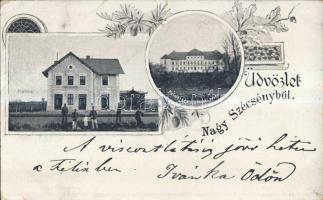 Üdvözlet
Nagy Szécsényből.
A viszontlátásig jövő héten
a Felixben. Ivánka Ödön